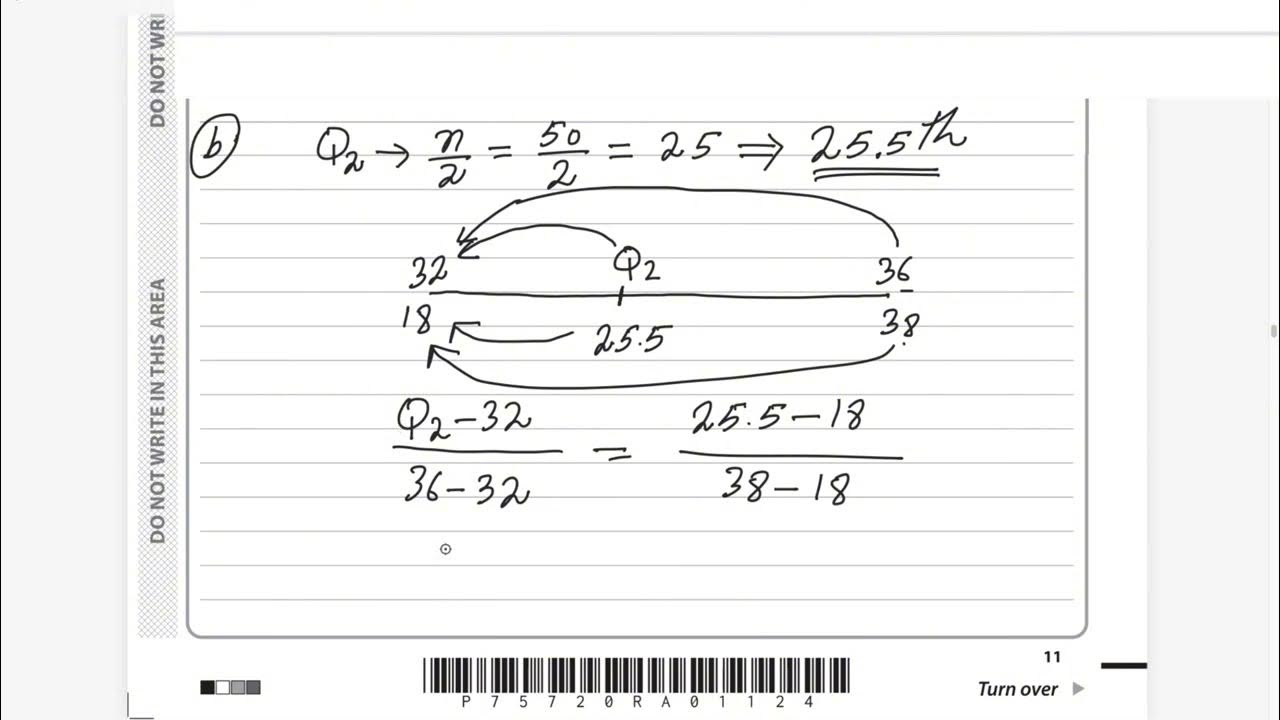 DO NOT WRI
DO NOT WRITE IN THIS AREA
(b) Q₂ → n/2 = 50/2 = 25 ⇒ 25.5th
32 Q₂ 36
18 25.5 38
Q₂ – 32 / 36 – 32 = 25.5 – 18 / 38 – 18
11
P75720RA01124
Turn over